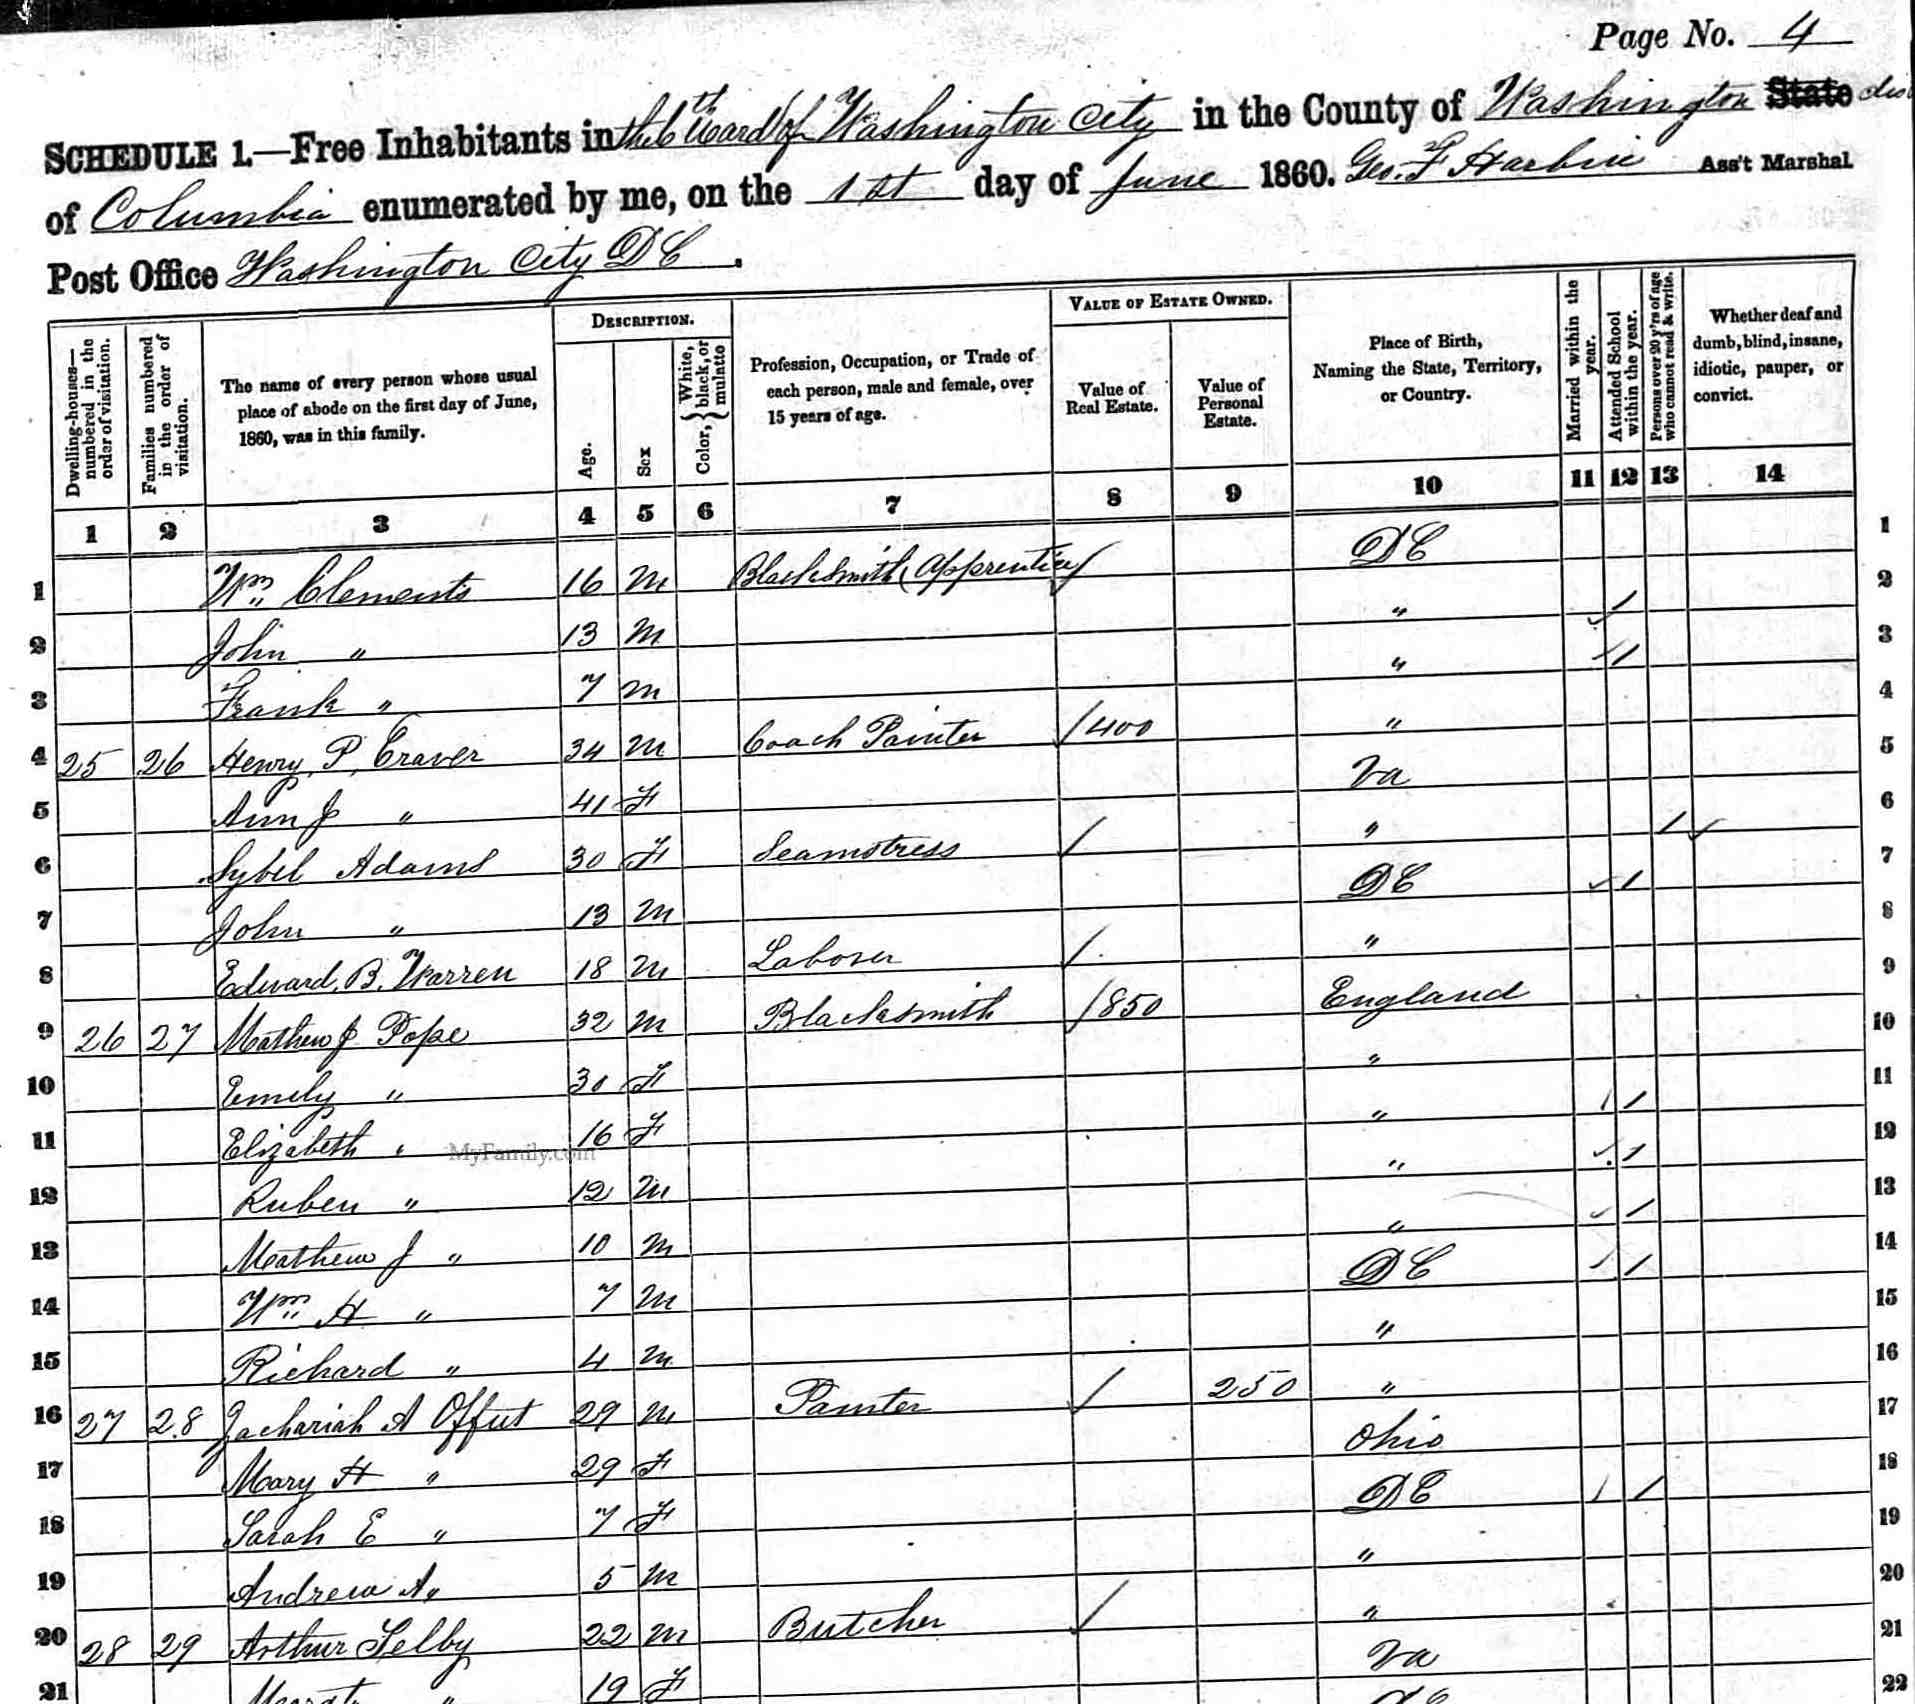 Page No. 4
SCHEDULE 1.—Free Inhabitants in the 6th Ward of Washington City in the County of Washington State
of Columbia enumerated by me, on the 1st day of June 1860. Geo. F Harbin Ass't Marshal
Post Office Washington City D C.
Dwelling-houses—numbered in the order of visitation.
Families numbered in the order of visitation.
The name of every person whose usual place of abode on the first day of June, 1860, was in this family.
DESCRIPTION.
Age.
Sex
Color, } White, black, or mulatto
Profession, Occupation, or Trade of each person, male and female, over 15 years of age.
VALUE OF ESTATE OWNED.
Value of Real Estate.
Value of Personal Estate.
Place of Birth, Naming the State, Territory, or Country.
Married within the year.
Attended School within the year.
Persons over 20 y'rs of age who cannot read & write.
Whether deaf and dumb, blind, insane, idiotic, pauper, or convict.
1 2 3 4 5 6 7 8 9 10 11 12 13 14
1 Wm Clements 16 M Blacksmith (apprentice) D C 1
2 John " 13 M " / 2
3 Frank " 7 M " / 3
4 25 26 Henry P. Craver 34 M Coach Painter / 400 " 4
5 Ann J " 41 F Va 5
6 Sybel Adams 30 F Seamstress / " / 6
7 John " 13 M D C / 7
8 Edward B. Warren 18 M Laborer / " 8
9 26 27 Mathew J Pope 32 M Blacksmith / 850 England 9
10 Emely " 30 F " 10
11 Elizabeth " 16 F " / 11
MyFamily.com
12 Ruben " 12 M " / 12
13 Mathew J " 10 M " / 13
14 Wm H " 7 M D C / 14
15 Richard " 4 M " 15
16 27 28 Zachariah A Offut 29 M Painter / 250 " 16
17 Mary H " 29 F Ohio 17
18 Sarah E " 7 F D C / 18
19 Andrew A " 5 M " 19
20 28 29 Arthur Selby 22 M Butcher / " 20
21 " 19 F Va 21
22